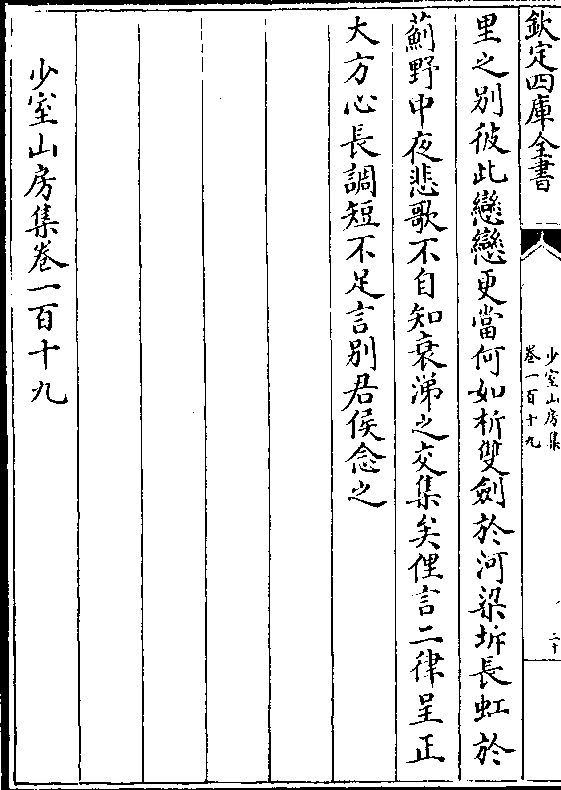 欽定四庫全書
少室山房集
卷一百十九
二十
里之別彼此戀戀更當何如析雙劍於河梁坼長虹於
薊野中夜悲歌不自知哀涕之交集矣俚言二律呈正
大方心長調短不足言別君侯念之
少室山房集卷一百十九